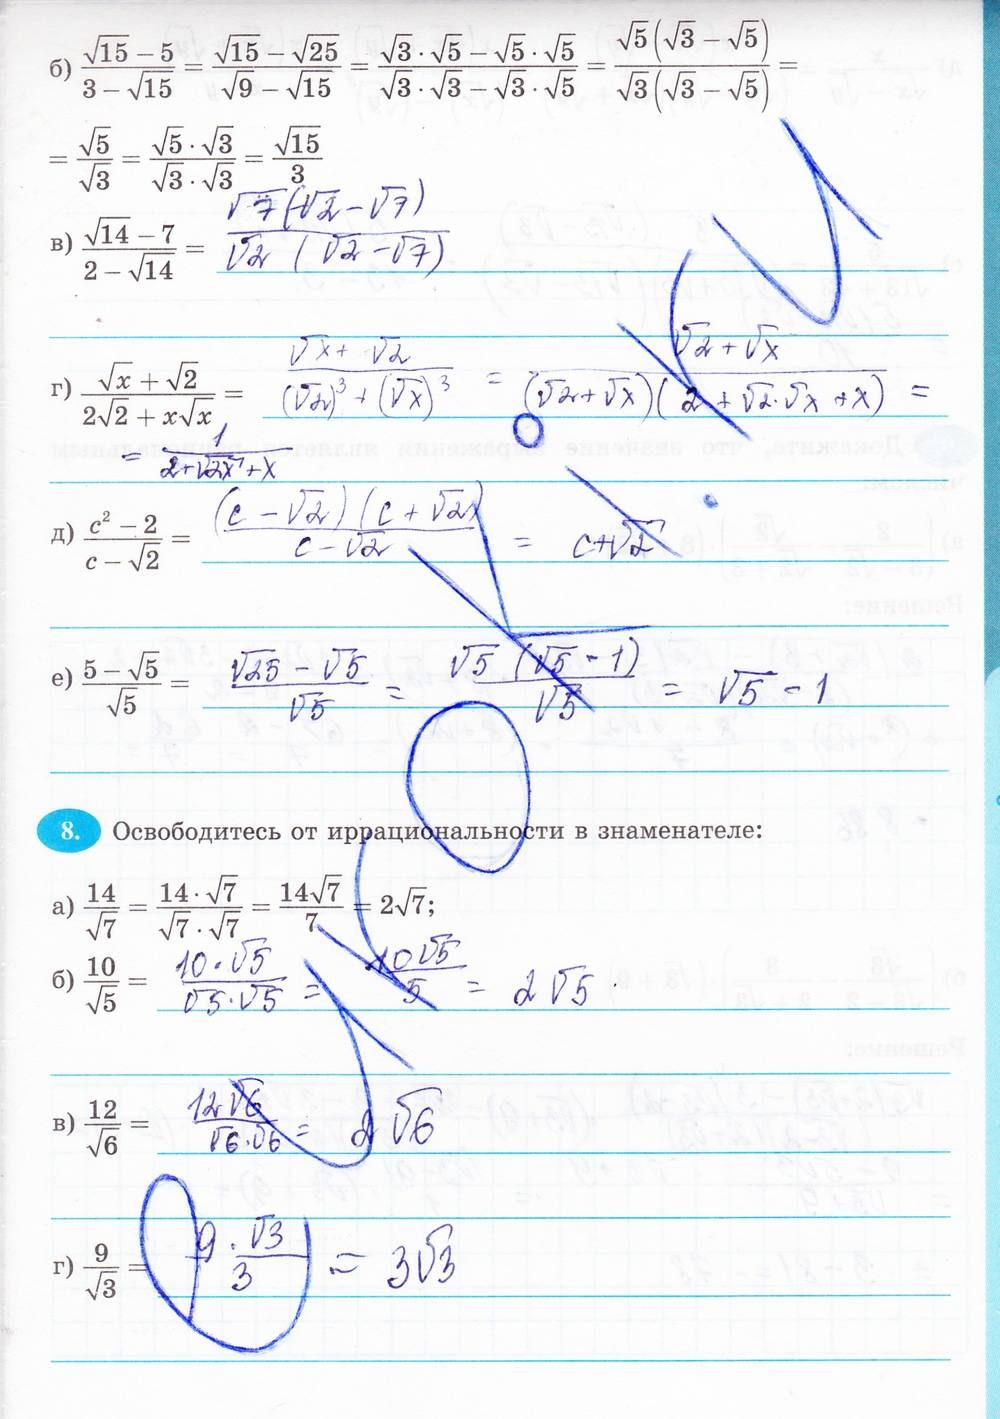 б) (√15 − 5)/(3 − √15) = (√15 − √25)/(√9 − √15) = (√3 · √5 − √5 · √5)/(√3 · √3 − √3 · √5) = √5(√3 − √5)/√3(√3 − √5) =
= √5/√3 = (√5 · √3)/(√3 · √3) = √15/3
в) (√14 − 7)/(2 − √14) = √7(√2 − √7)/√2 (√2 − √7)
г) (√x + √2)/(2√2 + x√x) = (√x + √2)/((√2)³ + (√x)³) = (√2 + √x)/(√2 + √x)(2 + √2·√x + x) =
= 1/(2 + √2x + x)
д) (c² − 2)/(c − √2) = (c − √2)(c + √2)/(c − √2) = c + √2
е) (5 − √5)/√5 = (√25 − √5)/√5 = √5 (√5 − 1)/√5 = √5 − 1
8. Освободитесь от иррациональности в знаменателе:
а) 14/√7 = (14 · √7)/(√7 · √7) = 14√7/7 = 2√7;
б) 10/√5 = (10 · √5)/(√5 · √5) = 10√5/5 = 2√5
в) 12/√6 = 12√6/(√6 · √6) = 2√6
г) 9/√3 = (9 · √3)/3 = 3√3